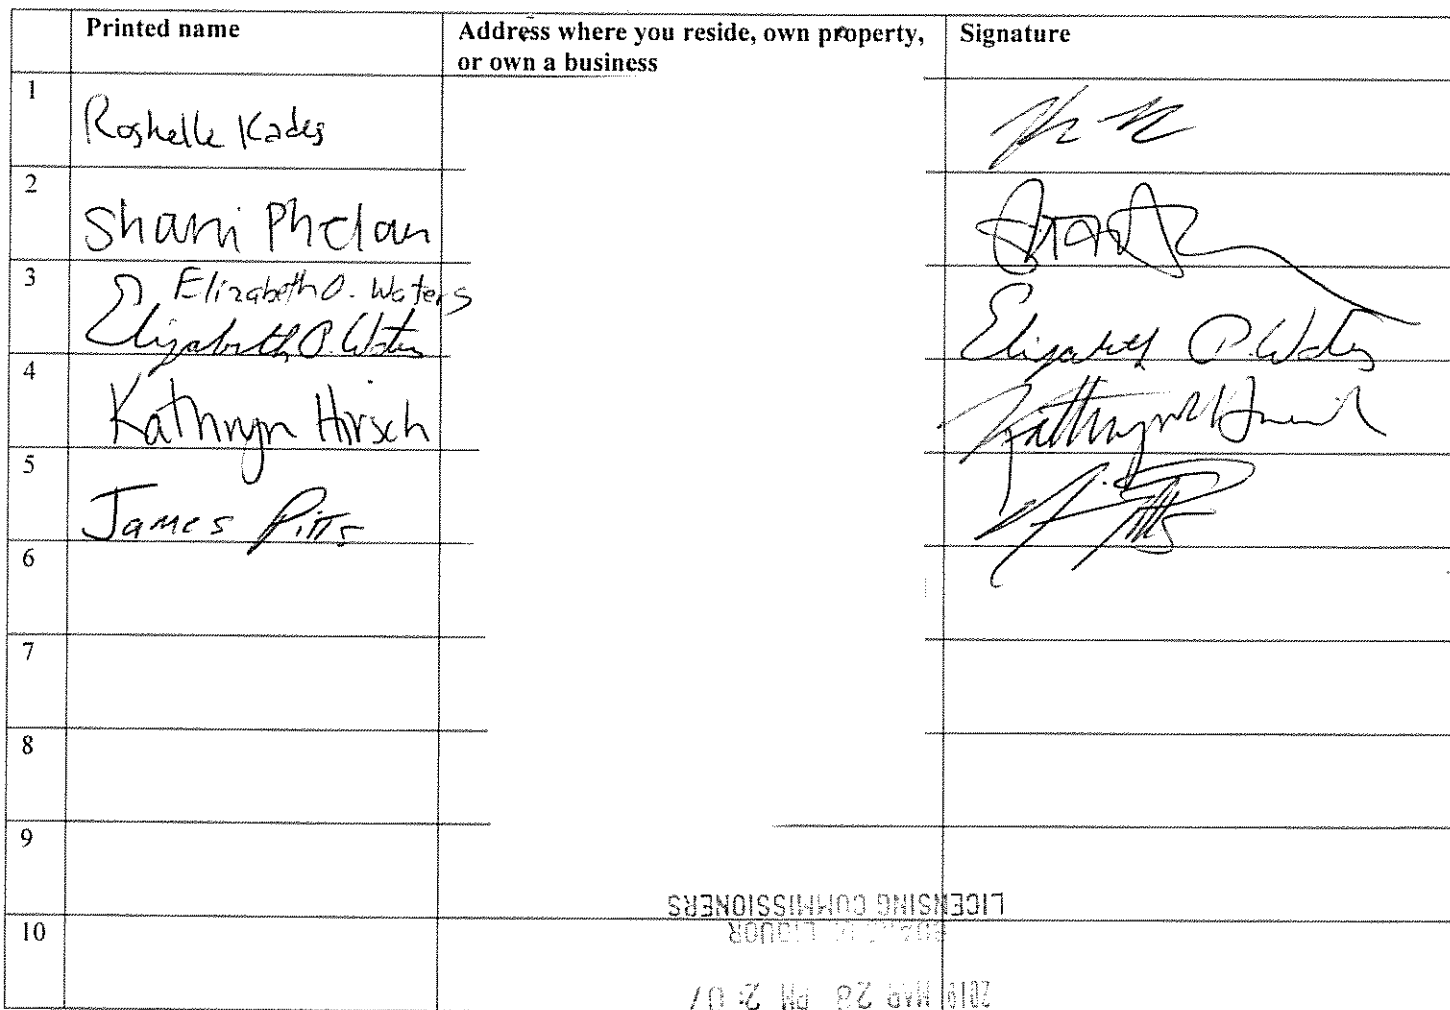 Printed name
Address where you reside, own property,
or own a business
Signature
1
Roshelle Kades
2
Shami Phelan
3
Elizabeth O. Waters
Elizabeth O. Waters
Elizabeth O. Waters
4
Kathryn Hirsch
5
James Pitts
6
7
8
9
10
LICENSING COMMISSIONERS
LIQUOR
2019 MAR 28 PM 2:07